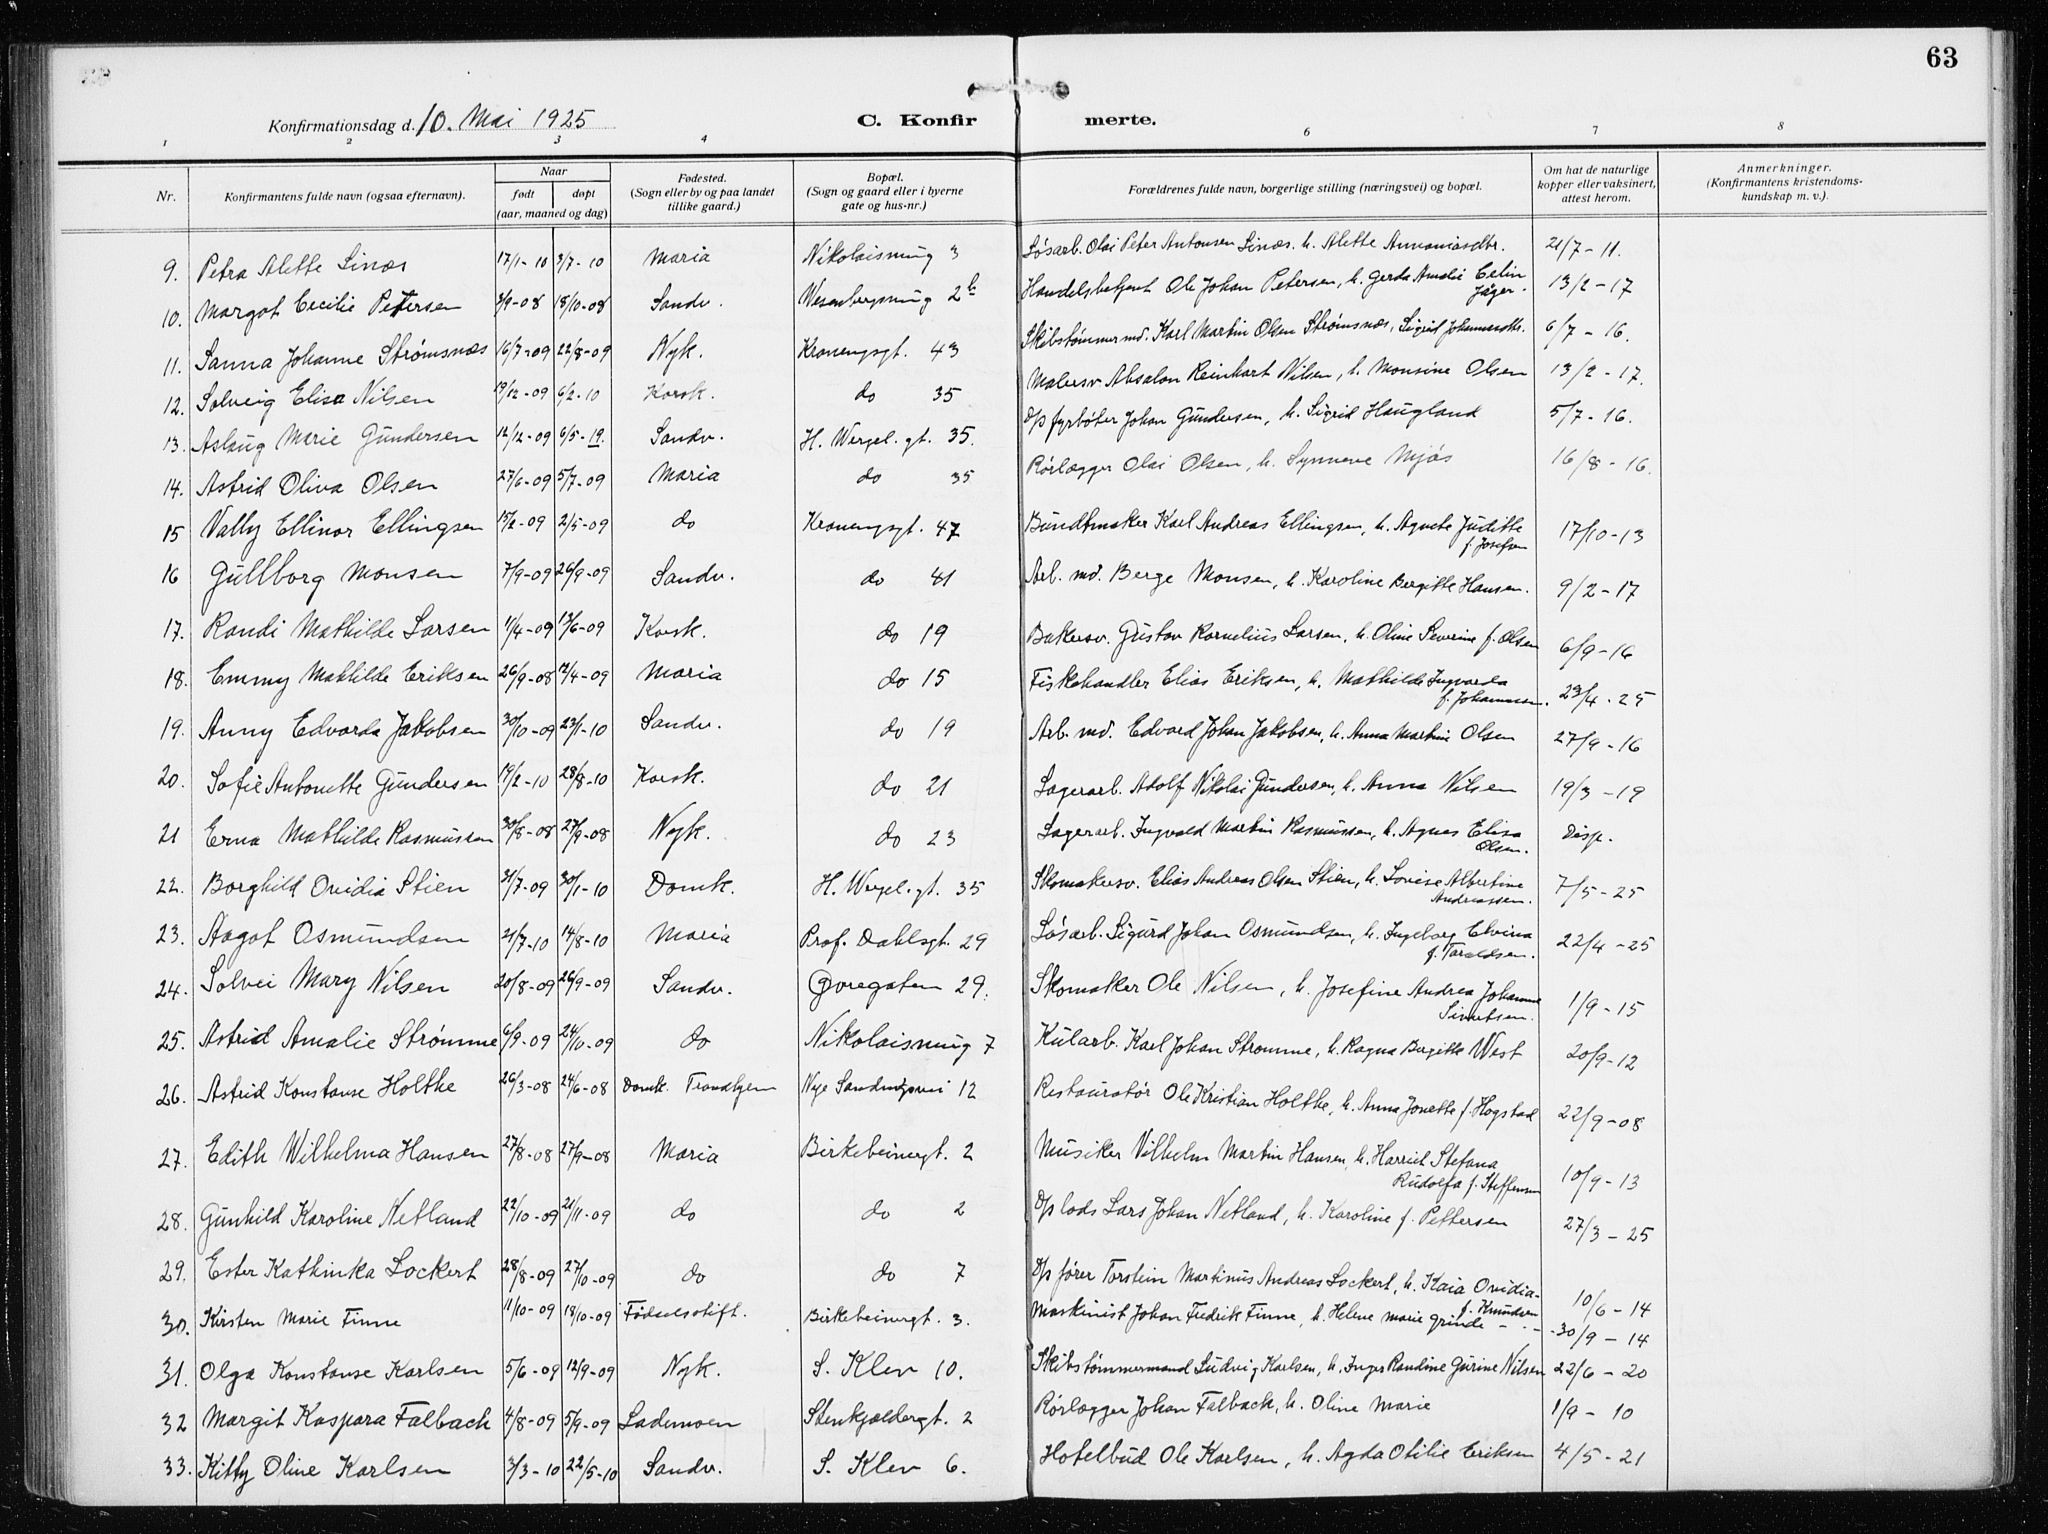 63
Konfirmationsdag d. 10. Mai 1925
C. Konfirmerte.
1 2 3 4 6 7 8
Nr. Konfirmantens fulde navn (ogsaa efternavn). Naar født døpt (aar, maaned og dag) Fødested. (Sogn eller by og paa landet tillike gaard.) Bopæl. (Sogn og gaard eller i byerne gate og hus-nr.) Forældrenes fulde navn, borgerlige stilling (næringsvei) og bopæl. Om hat de naturlige kopper eller vaksinert, attest herom. Anmerkninger. (Konfirmantens kristendoms-kundskap m. v.).
9. Petra Alette Linæs 17/1-10 3/7-10 Maria Nikolaismug 3 Løsarb. Olai Peter Antonsen Linæs. h. Alette Annaniasdtr. 21/7-11.
10. Margot Cecilie Petersen 3/9-08 18/10-08 Sandv. Wesenbergsmug 2b Handelsbetjent Ole Johan Petersen, h. Gerda Amalie Celin Jäger. 13/2-17
11. Sanna Johanne Strømsnæs 16/7-09 22/8-09 Nyk. Kroneng​sgt. 43 Skibstømmermd. Karl Martin Olsen Strømsnæs, Sigrid Johannesdtr. 6/7-16.
12. Solveig Elisa Nilsen 19/12-09 6/2-10 Korsk. do 35 Malersv Absalon Reinhart Nilsen, h. Monsine Olsen 13/2-17.
13. Aslaug Marie Gundersen 12/12-09 6/5-19. Sandv. H. Wergel. gt. 35. D/s fyrbøter Johan Gundersen, h. Sigrid Haugland 5/7-16.
14. Astrid Oliva Olsen 27/6-09 5/7-09 Maria do 35 Rørlægger Olai Olsen, h. Synneve Mjøs 16/8-16.
15 Vally Ellinor Ellingsen 15/2-09 2/5-09 do Kronengsgt. 47 Bundtmaker Karl Andreas Ellingsen, h. Agnete Juditte f. Josefsen 17/10-13
16 Gullborg Monsen 7/9-09 26/9-09 Sandv. do 41 Arb. md. Berge Monsen, h. Karoline Bergitte Hansen. 9/2-17
17. Randi Mathilde Larsen 11/4-09 13/6-09 Korsk. do 19 Bakersv. Gustav Kornelius Larsen, h. Oline Severine f. Olsen 6/9-16
18. Emmy Mathilde Eriksen 26/9-08 12/4-09 Maria do 15 Fiskehandler Elias Eriksen, h. Mathilde Ingvarda f. Johannesen. 29/4-25
19. Anny Edvarda Jakobsen 30/10-09 23/1-10 Sandv. do 19 Arb. md. Edvard Johan Jakobsen, h. Anna Martine Olsen 27/9-16
20. Sofie Antonette Gundersen 19/2-10 28/8-10 Korsk. do 21 Lagerarb. Adolf Nikolai Gundersen, h. Anna Nilsen 19/3-19
21 Erna Mathilde Rasmussen 30/8-08 27/9-08 Nyk. do 23 Lagerarb. Ingvald Martin Rasmussen, h. Agnes Elisa Olsen. Disp.
22. Borghild Ovidia Stien 31/7-09 30/1-10 Domk. H. Wergel. gt. 35 Skomakersv. Elias Andreas Olsen Stien, h. Lovise Albertine Andreassen. 7/5-25
23. Aagot Osmundsen 21/7-10 14/8-10 Maria Prof. Dahlsgt. 29 Løsarb. Sigurd Johan Osmundsen, h. Ingeborg Elvina f. Taraldsen. 22/4-25
24. Solvei Mary Nilsen 20/8-09 26/9-09 Sandv. Øvregaten 29. Skomaker Ole Nilsen, h. Josefine Andrea Johanne Sivertsen. 1/9-15
25. Astrid Amalie Strømme 6/9-09 24/10-09 do Nikolaismug 7 Kularb. Karl Johan Strømme, h. Ragna Bergitte West 20/9-12
26. Astrid Konstanse Holthe 26/3-08 24/6-08 Domk. Trondhjem Nye Sandvigsvei 12 Restauratør Ole Kristian Holthe, h. Anna Jonette f. Hogstad 22/9-08
27. Edith Wilhelma Hansen 27/8-08 27/9-08 Maria Birkebeinergt. 2 Musiker Vilhelm Martin Hansen, h. Harriet Stefana Rudolfa f. Steffensen 10/9-13
28. Gunhild Karoline Netland 22/10-09 21/11-09 do do 2 D/s lods Lars Johan Netland, h. Karoline f. Pettersen 27/3-25
29. Ester Kathinka Lockert 28/8-09 27/10-09 do do 7 D/s fører Torstein Martinus Andreas Lockert, h. Kaia Ovidia f. Knudsen 10/6-14
30. Kirsten Marie Finne 11/10-09 18/10-09 Fødselsstift. Birkebeinergt. 3. Maskinist Johan Fredrik Finne, h. Helene Marie Grinde 30/9-14
31. Olga Konstanse Karlsen 5/6-09 12/9-09 Nyk. S. Klev 10. Skibstømmermand Ludvig Karlsen, h. Inger Randine Gurine Nilsen 22/6-20
32 Margit Kaspara Falback 4/8-09 5/9-09 Lademoen Stenkjældergt. 2 Rørlægger Johan Falback, h. Oline Marie 1/9-10
33. Kitty Oline Karlsen 3/3-10 22/5-10 Sandv. S. Klev 6. Hotelbud Ole Karlsen, h. Agda Otilie Eriksen 4/5-21